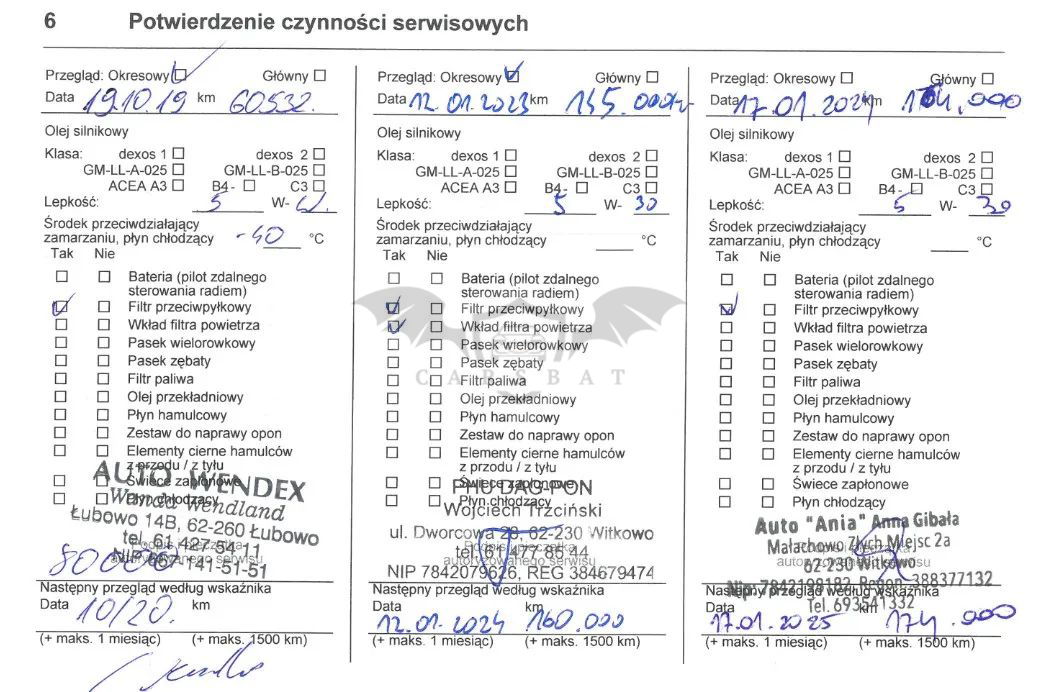 6 Potwierdzenie czynności serwisowych
Przegląd: Okresowy Główny
Data 19.10.19 km 60532.
Olej silnikowy
Klasa: dexos 1 dexos 2
GM-LL-A-025 GM-LL-B-025
ACEA A3 B4- C3
Lepkość: 5 W-
Środek przeciwdziałający
zamarzaniu, płyn chłodzący -40 °C
Tak Nie
Bateria (pilot zdalnego
sterowania radiem)
Filtr przeciwpyłkowy
Wkład filtra powietrza
Pasek wielorowkowy
Pasek zębaty
Filtr paliwa
Olej przekładniowy
Płyn hamulcowy
Zestaw do naprawy opon
Elementy cierne hamulców
z przodu / z tyłu
Świece zapłonowe
Płyn chłodzący
AUTO WENDEX
Wanda Wendland
Łubowo 14B, 62-260 Łubowo
tel. 61 427 54 11
autoryzowanego serwisu
80000
Następny przegląd według wskaźnika
Data 10/20. km
(+ maks. 1 miesiąc) (+ maks. 1500 km)
Przegląd: Okresowy Główny
Data 12.01.2023 km 145.000
Olej silnikowy
Klasa: dexos 1 dexos 2
GM-LL-A-025 GM-LL-B-025
ACEA A3 B4- C3
Lepkość: 5 W- 30
Środek przeciwdziałający
zamarzaniu, płyn chłodzący °C
Tak Nie
Bateria (pilot zdalnego
sterowania radiem)
Filtr przeciwpyłkowy
Wkład filtra powietrza
Pasek wielorowkowy
Pasek zębaty
CARSBAT
Filtr paliwa
Olej przekładniowy
Płyn hamulcowy
Zestaw do naprawy opon
Elementy cierne hamulców
z przodu / z tyłu
Świece zapłonowe
Płyn chłodzący
PHU DAG-PON
Wojciech Trzciński
ul. Dworcowa 29, 62-230 Witkowo
Podpis i pieczątka
tel. (61) 477 86 44
autoryzowanego serwisu
NIP 7842079626, REG 384679474
Następny przegląd według wskaźnika
Data km
12.01.2024 160.000
(+ maks. 1 miesiąc) (+ maks. 1500 km)
Przegląd: Okresowy Główny
Data 17.01.2024 km
Olej silnikowy
Klasa: dexos 1 dexos 2
GM-LL-A-025 GM-LL-B-025
ACEA A3 B4- C3
Lepkość: 5 W- 30
Środek przeciwdziałający
zamarzaniu, płyn chłodzący °C
Tak Nie
Bateria (pilot zdalnego
sterowania radiem)
Filtr przeciwpyłkowy
Wkład filtra powietrza
Pasek wielorowkowy
Pasek zębaty
Filtr paliwa
Olej przekładniowy
Płyn hamulcowy
Zestaw do naprawy opon
Elementy cierne hamulców
z przodu / z tyłu
Świece zapłonowe
Płyn chłodzący
Auto "Ania" Anna Gibała
Małachowo Złych Miejsc 2a
62-230 Witkowo
Nip. 7842198182 Regon 388377132
Następny przegląd według wskaźnika
Tel. 693541332
Data km
17.01.2025 174.000
(+ maks. 1 miesiąc) (+ maks. 1500 km)